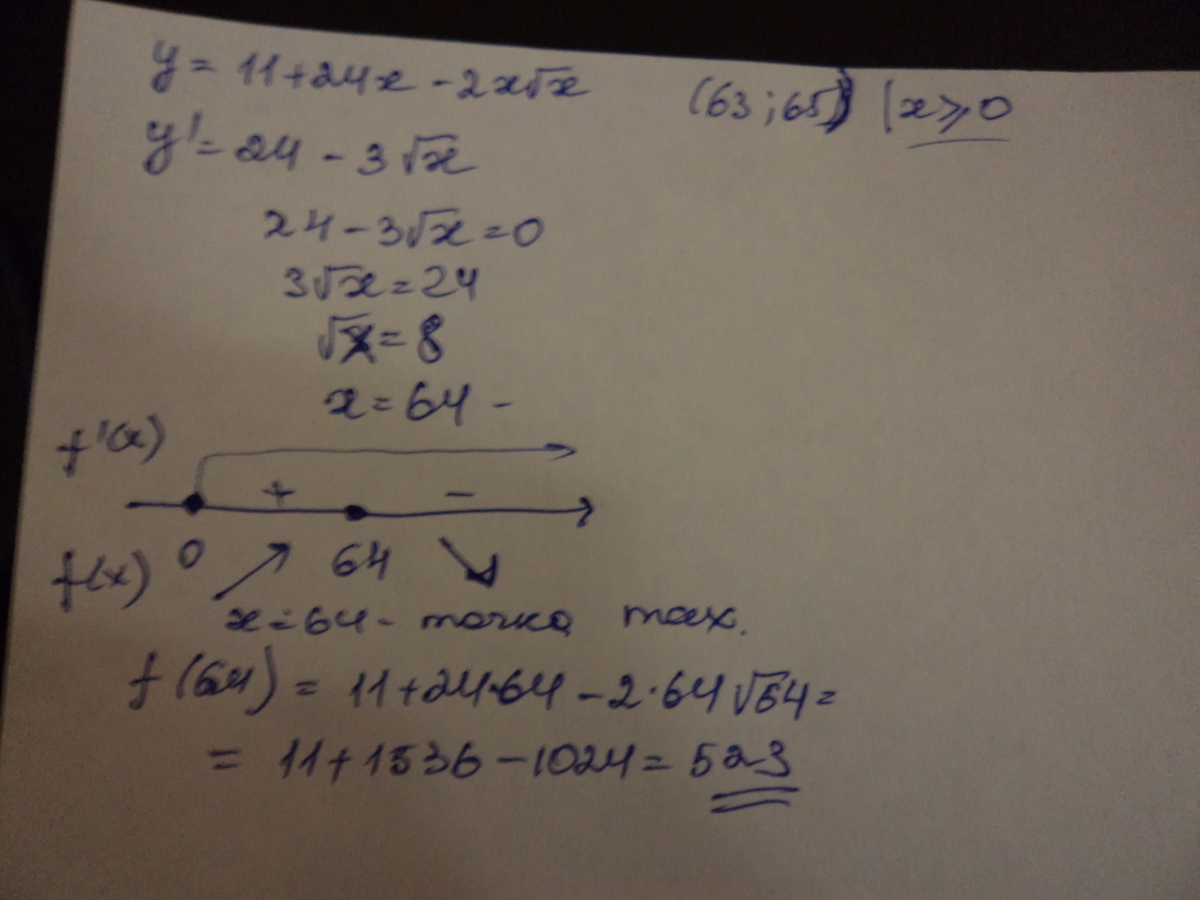 y = 11+24x - 2x√x (63;65) | x ⩾ 0
y' = 24 - 3√x
24 - 3√x = 0
3√x = 24
√x = 8
x = 64 -
f'(x)
+ -
0 64
f(x)
x = 64 - точка max.
f(64) = 11+24·64 - 2·64√64 =
= 11+1536 - 1024 = 523